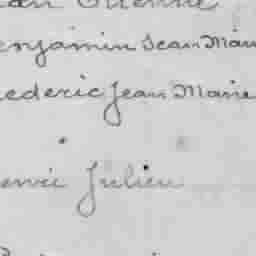 Etienne
enjamin Jean Mau
ederic Jean Marie
Julien